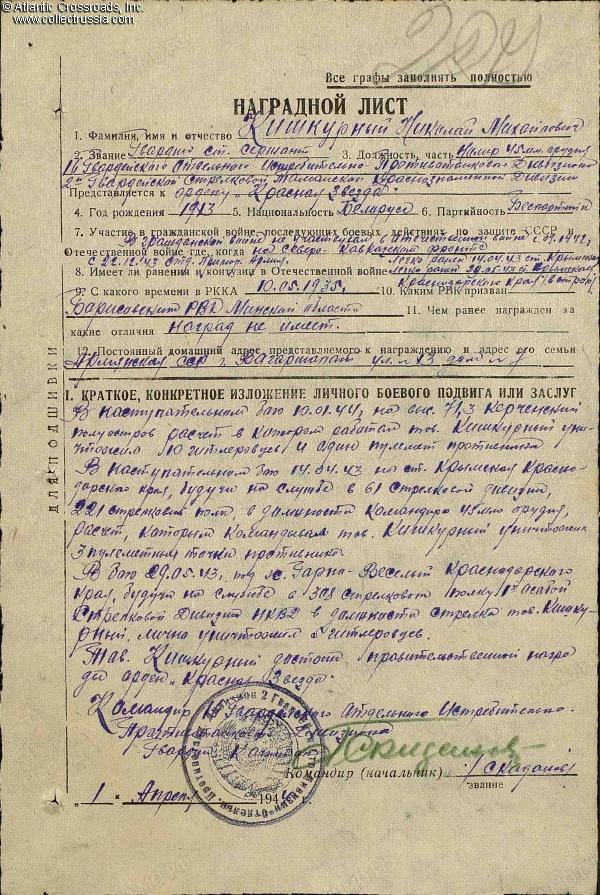 © Atlantic Crossroads, Inc.
www.collectrussia.com
204
Все графы заполнять полностью
НАГРАДНОЙ ЛИСТ
1. Фамилия, имя и отчество Кишкурный Николай Михайлович
2. Звание Гвардии ст. сержант 3. Должность, часть Номер 45 мм орудия
1й Гвардейского Отдельного Истребительно-Противотанкового Дивизиона
2ой Гвардейской Стрелковой Таманской Краснознаменной Дивизии
Представляется к ордену „Красная Звезда"
4. Год рождения 1913 5. Национальность Беларус 6. Партийность Беспартийн
7. Участие в гражданской войне, последующих боевых действиях по защите СССР и
В Гражданской войне не участвовал в Отечественной войне с 09.1942,
Отечественной войне где, когда на Северо-Кавказском фронте
с 22.12.43 Отд. Примор. Армия.
8. Имеет ли ранения и контузии в Отечественной войне легко ранен 14.04.43 ст. Крымская
легко ранен 29.05.43 Краснодарского края
9. С какого времени в РККА 10.05.1935 10. Каким РВК призван
Борисовским РВК Минской области 11. Чем ранее награжден за
какие отличия наград не имеет.
12. Постоянный домашний адрес представляемого к награждению и адрес его семьи
Армянская ССР г. Вагаршапат ул. 23 дом
ДЛЯ ПОДШИВКИ
I. КРАТКОЕ, КОНКРЕТНОЕ ИЗЛОЖЕНИЕ ЛИЧНОГО БОЕВОГО ПОДВИГА ИЛИ ЗАСЛУГ
В наступательном бою 10.01.44, на выс. 71,3 Керченский
полуостров расчет в котором работал тов. Кишкурный уни-
чтожил 10 гитлеровцев и один пулемет противника
В наступательном бою 14.04.43 на ст. Крымская Красно-
дарского края, будучи на службе в 61 стрелковой дивизии,
221 стрелковый полк, в должности командира 45 мм орудия,
расчет, которым командовал тов. Кишкурный уничтожил
3 пулеметных точки противника.
В бою 29.05.43, под Горно-Веселый Краснодарского
края, будучи на службе в стрелкового полку 1ой Особой
Стрелковой Дивизии НКВД в должности стрелка тов. Кишку-
рный, лично уничтожил 5 гитлеровцев.
Тов. Кишкурный достоин правительственной награ-
ды орден „Красная Звезда"
Командир Гвардейского Отдельного Истребительно-
Противотанкового Дивизиона
Гвардии
Командир (начальник) /Скиданов/
звание
„ 1 " Апреля 194 г.